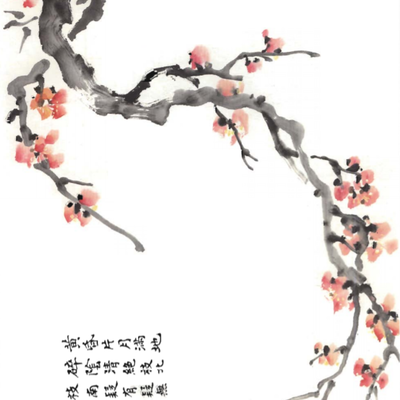 黃昏片月滿地
碎陰清絕枝北
枝南疑有疑無